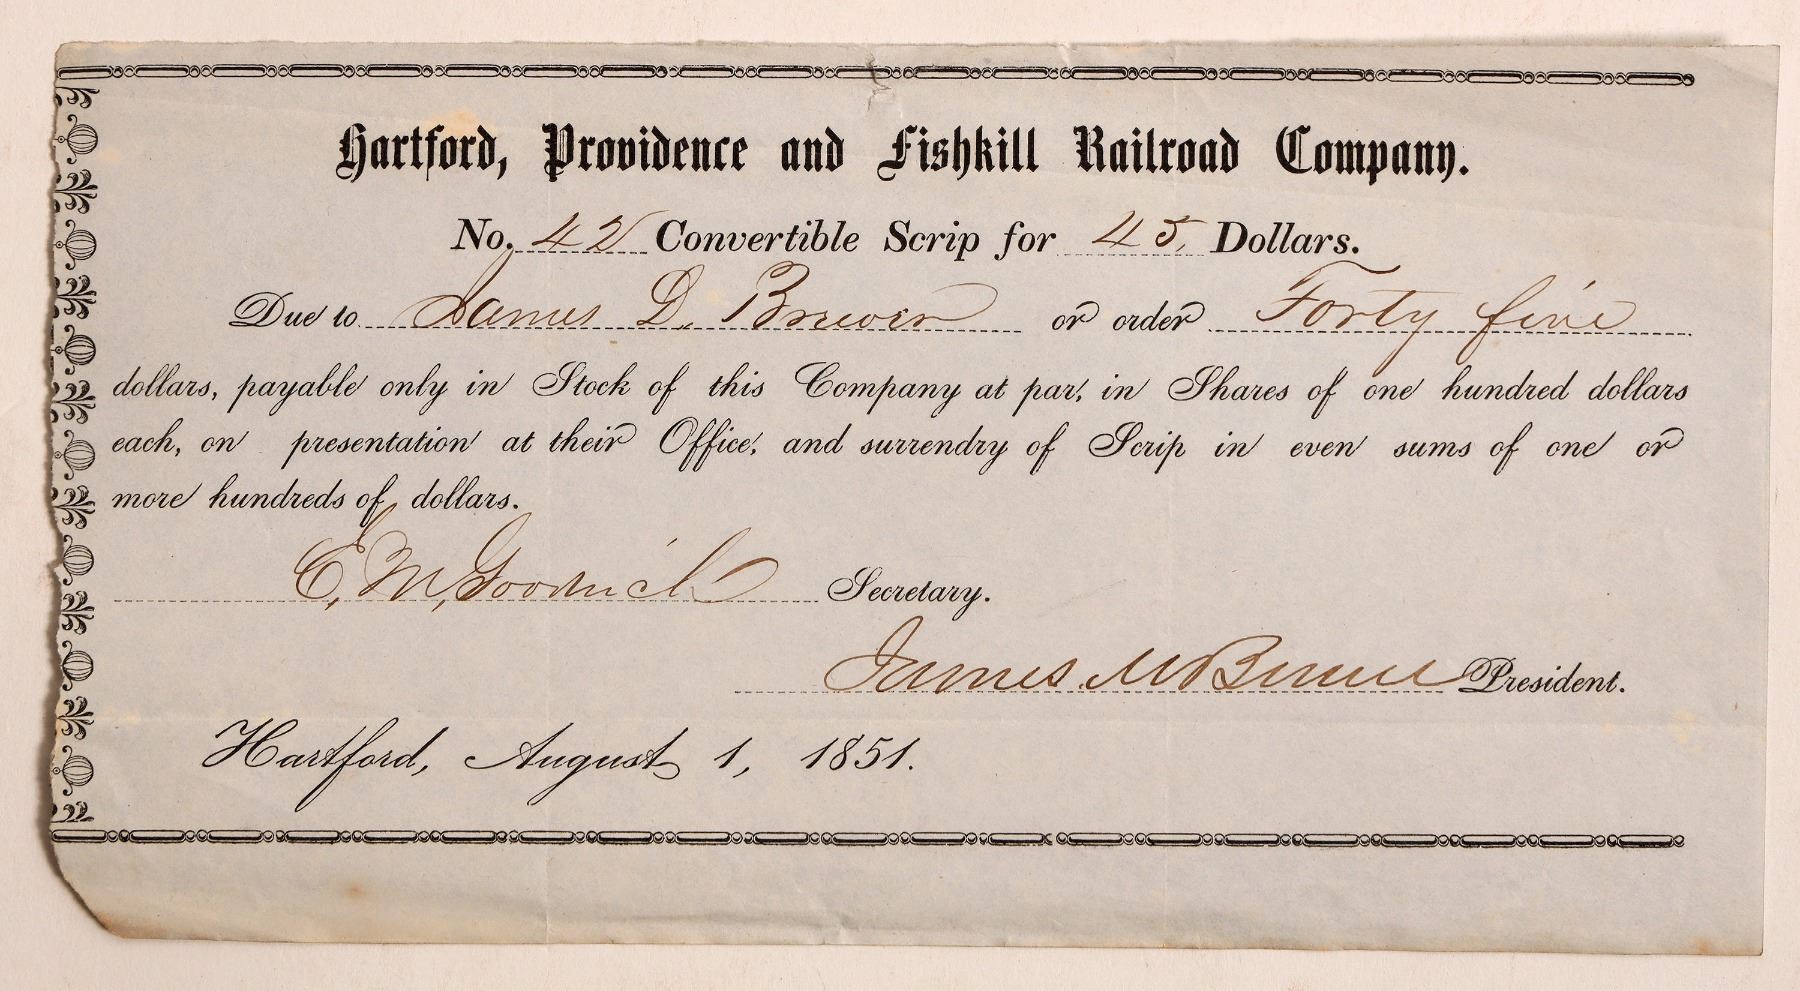 Hartford, Providence and Fishkill Railroad Company.
No. 42 Convertible Scrip for 45. Dollars.
Due to James D. Brewer or order Forty five
dollars, payable only in Stock of this Company at par, in Shares of one hundred dollars
each, on presentation at their Office, and surrendry of Scrip in even sums of one or
more hundreds of dollars.
E. M. Goodrich Secretary.
James M B President.
Hartford, August 1, 1851.